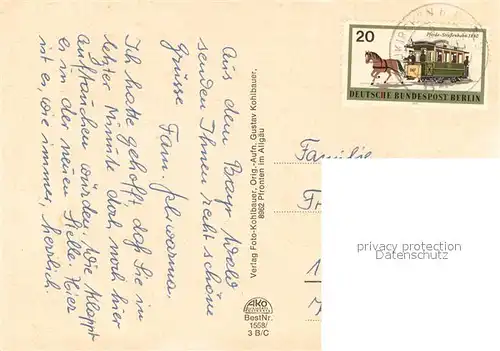 Aus dem Bayr. Wald
senden Ihnen recht schöne
Grüsse Fam.
Ich hatte gehofft daß Sie in
letzter Minute doch noch hier
auftauchen würden. Wie klappt
es in der neuen Stelle? Hier
ist es, wie immer, herrlich.
Verlag Foto-Kohlbauer, Orig.-Aufn. Gustav Kohlbauer,
8962 Pfronten im Allgäu
AKO
BestNr.
1558/
3 B/C
20
Pferde-Straßenbahn 1892
DEUTSCHE BUNDESPOST BERLIN
Familie
privacy protection
Datenschutz